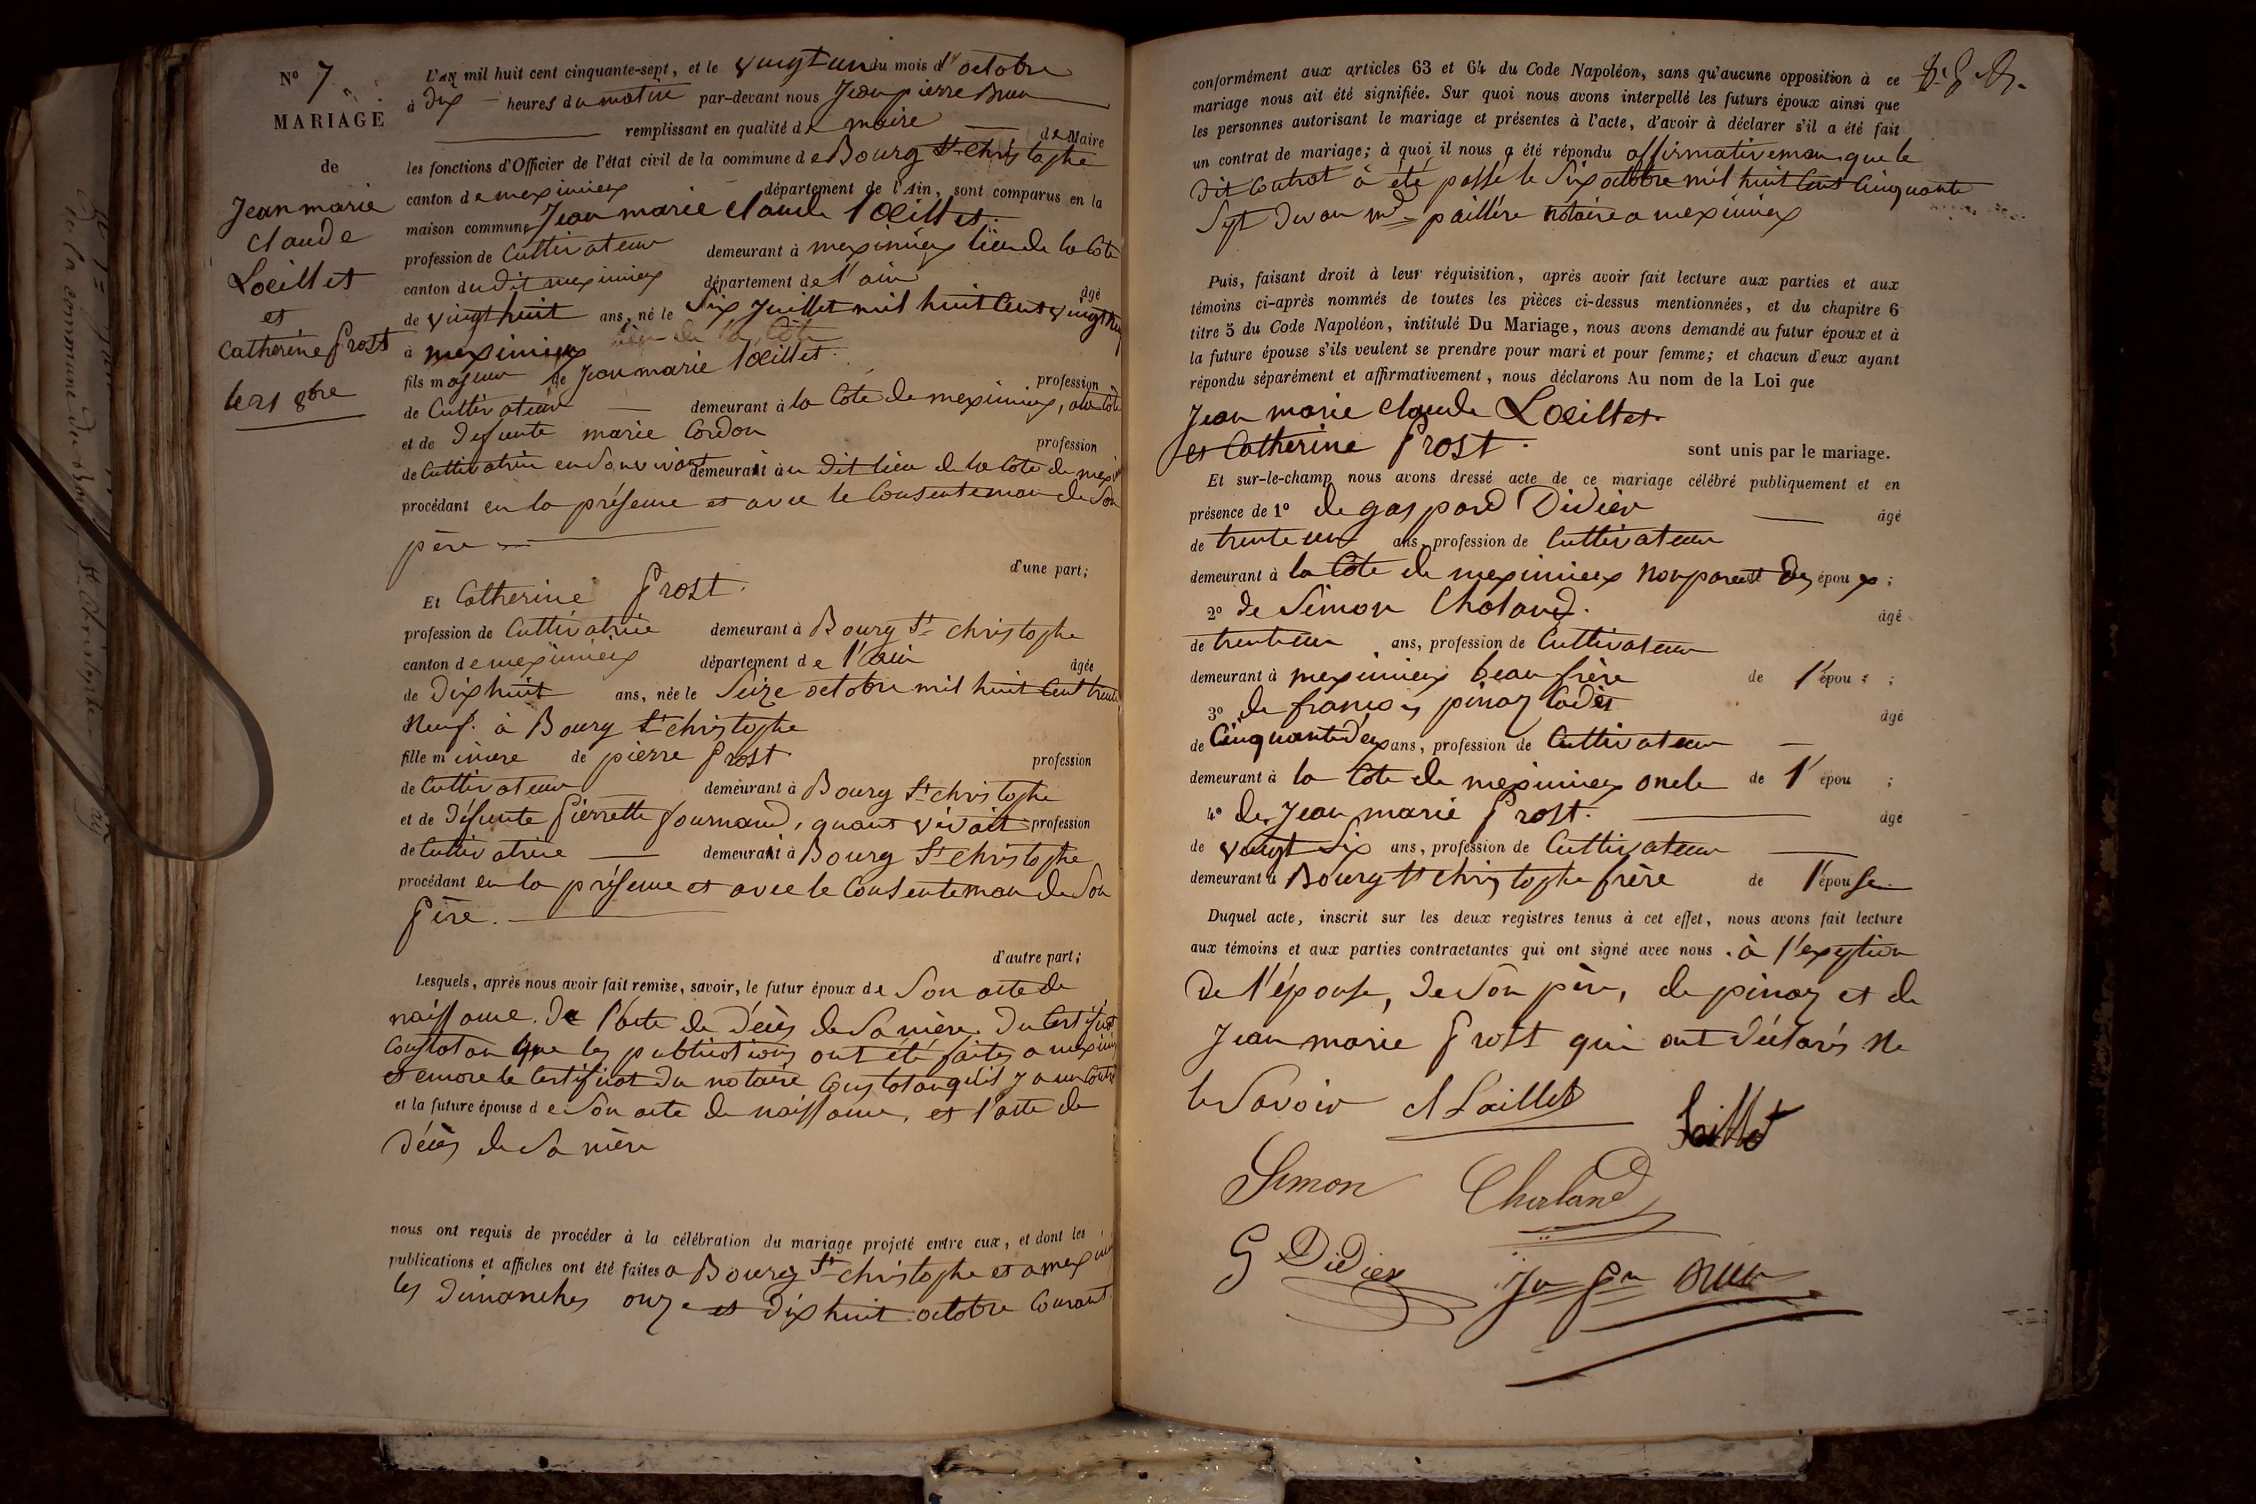 N° 7
MARIAGE
de
Jean marie
Claude
Loeillet
et
Catherine Prost
le 21 8bre
L'an mil huit cent cinquante-sept, et le vingt un du mois d'octobre
à dix heures du matin par-devant nous Jean pierre Brun
remplissant en qualité de maire de Maire
les fonctions d'Officier de l'état civil de la commune de Bourg St christophe
canton de meximieux département de l'Ain, sont comparus en la
maison commune Jean marie claude lOeillet
profession de Cultivateur demeurant à meximieux lieu de la Côte
canton du dit meximieux département de l'ain âgé
de vingt huit ans, né le Six Juillet mil huit Cent vingt
à meximieux
fils majeur de Jean marie lOeillet profession
de Cultivateur demeurant à la Côte de meximieux,
et de defunte marie Cordon profession
de Cultivatrice en Son vivant demeurant au dit lieu de la Côte de
procédant en la présence et avec le Consenteman de Son
père
d'une part;
Et Catherine Prost
profession de Cultivatrice demeurant à Bourg St christophe
canton de meximieux département de l'Ain âgée
de Dix huit ans, née le Seize octobre mil huit Cent trente
Neuf à Bourg St christophe
fille mineure de pierre Prost profession
de Cultivateur demeurant à Bourg St christophe
et de défunte Pierrette fournand, quant vivait profession
de Cultivatrice demeurant à Bourg St christophe
procédant en la présence et avec le Consenteman de Son
Père.
d'autre part;
Lesquels, après nous avoir fait remise, savoir, le futur époux de Son acte de
naissance. De l'acte de décès de Sa mère. Du Certificat
Constatan que les publications ont été faites a
et encore le Certificat du notaire Constatan qu'il y a un
et la future épouse de Son acte de naissance, et l'acte de
décès de Sa mère
nous ont requis de procéder à la célébration du mariage projeté entre eux, et dont les
publications et affiches ont été faites a Bourg St christophe et a
les dimanches onze et dix huit octobre Courant
conformément aux articles 63 et 64 du Code Napoléon, sans qu'aucune opposition à ce
mariage nous ait été signifiée. Sur quoi nous avons interpellé les futurs époux ainsi que
les personnes autorisant le mariage et présentes à l'acte, d'avoir à déclarer s'il a été fait
un contrat de mariage; à quoi il nous a été répondu affirmativeman que le
dit Contrat à été passé le Six octobre mil huit Cent Cinquante
Sept devan paillère notaire a meximieux
Puis, faisant droit à leur réquisition, après avoir fait lecture aux parties et aux
témoins ci-après nommés de toutes les pièces ci-dessus mentionnées, et du chapitre 6
titre 5 du Code Napoléon, intitulé Du Mariage, nous avons demandé au futur époux et à
la future épouse s'ils veulent se prendre pour mari et pour femme; et chacun d'eux ayant
répondu séparément et affirmativement, nous déclarons Au nom de la Loi que
Jean marie claude LOeillet
et Catherine Prost sont unis par le mariage.
Et sur-le-champ nous avons dressé acte de ce mariage célébré publiquement et en
présence de 1° de gaspard Didier âgé
de trente un ans, profession de Cultivateur
demeurant à la Côte de meximieux non parent des époux ;
2° de Simon Chaland. âgé
de trente un ans, profession de Cultivateur
demeurant à meximieux beau frère de l'épou ;
3° de françois pinaz Cadet âgé
de Cinquante deux ans, profession de Cultivateur
demeurant à la Côte de meximieux oncle de l'épou ;
4° de Jean marie Prost. âgé
de vingt Six ans, profession de Cultivateur
demeurant à Bourg St christophe frère de l'épouse
Duquel acte, inscrit sur les deux registres tenus à cet effet, nous avons fait lecture
aux témoins et aux parties contractantes qui ont signé avec nous. à l'exeption
de l'épouse, de Son père, de pinaz et de
Jean marie Prost qui ont déclarés Ne
le Savoir
Simon Chaland
G Didier Brun